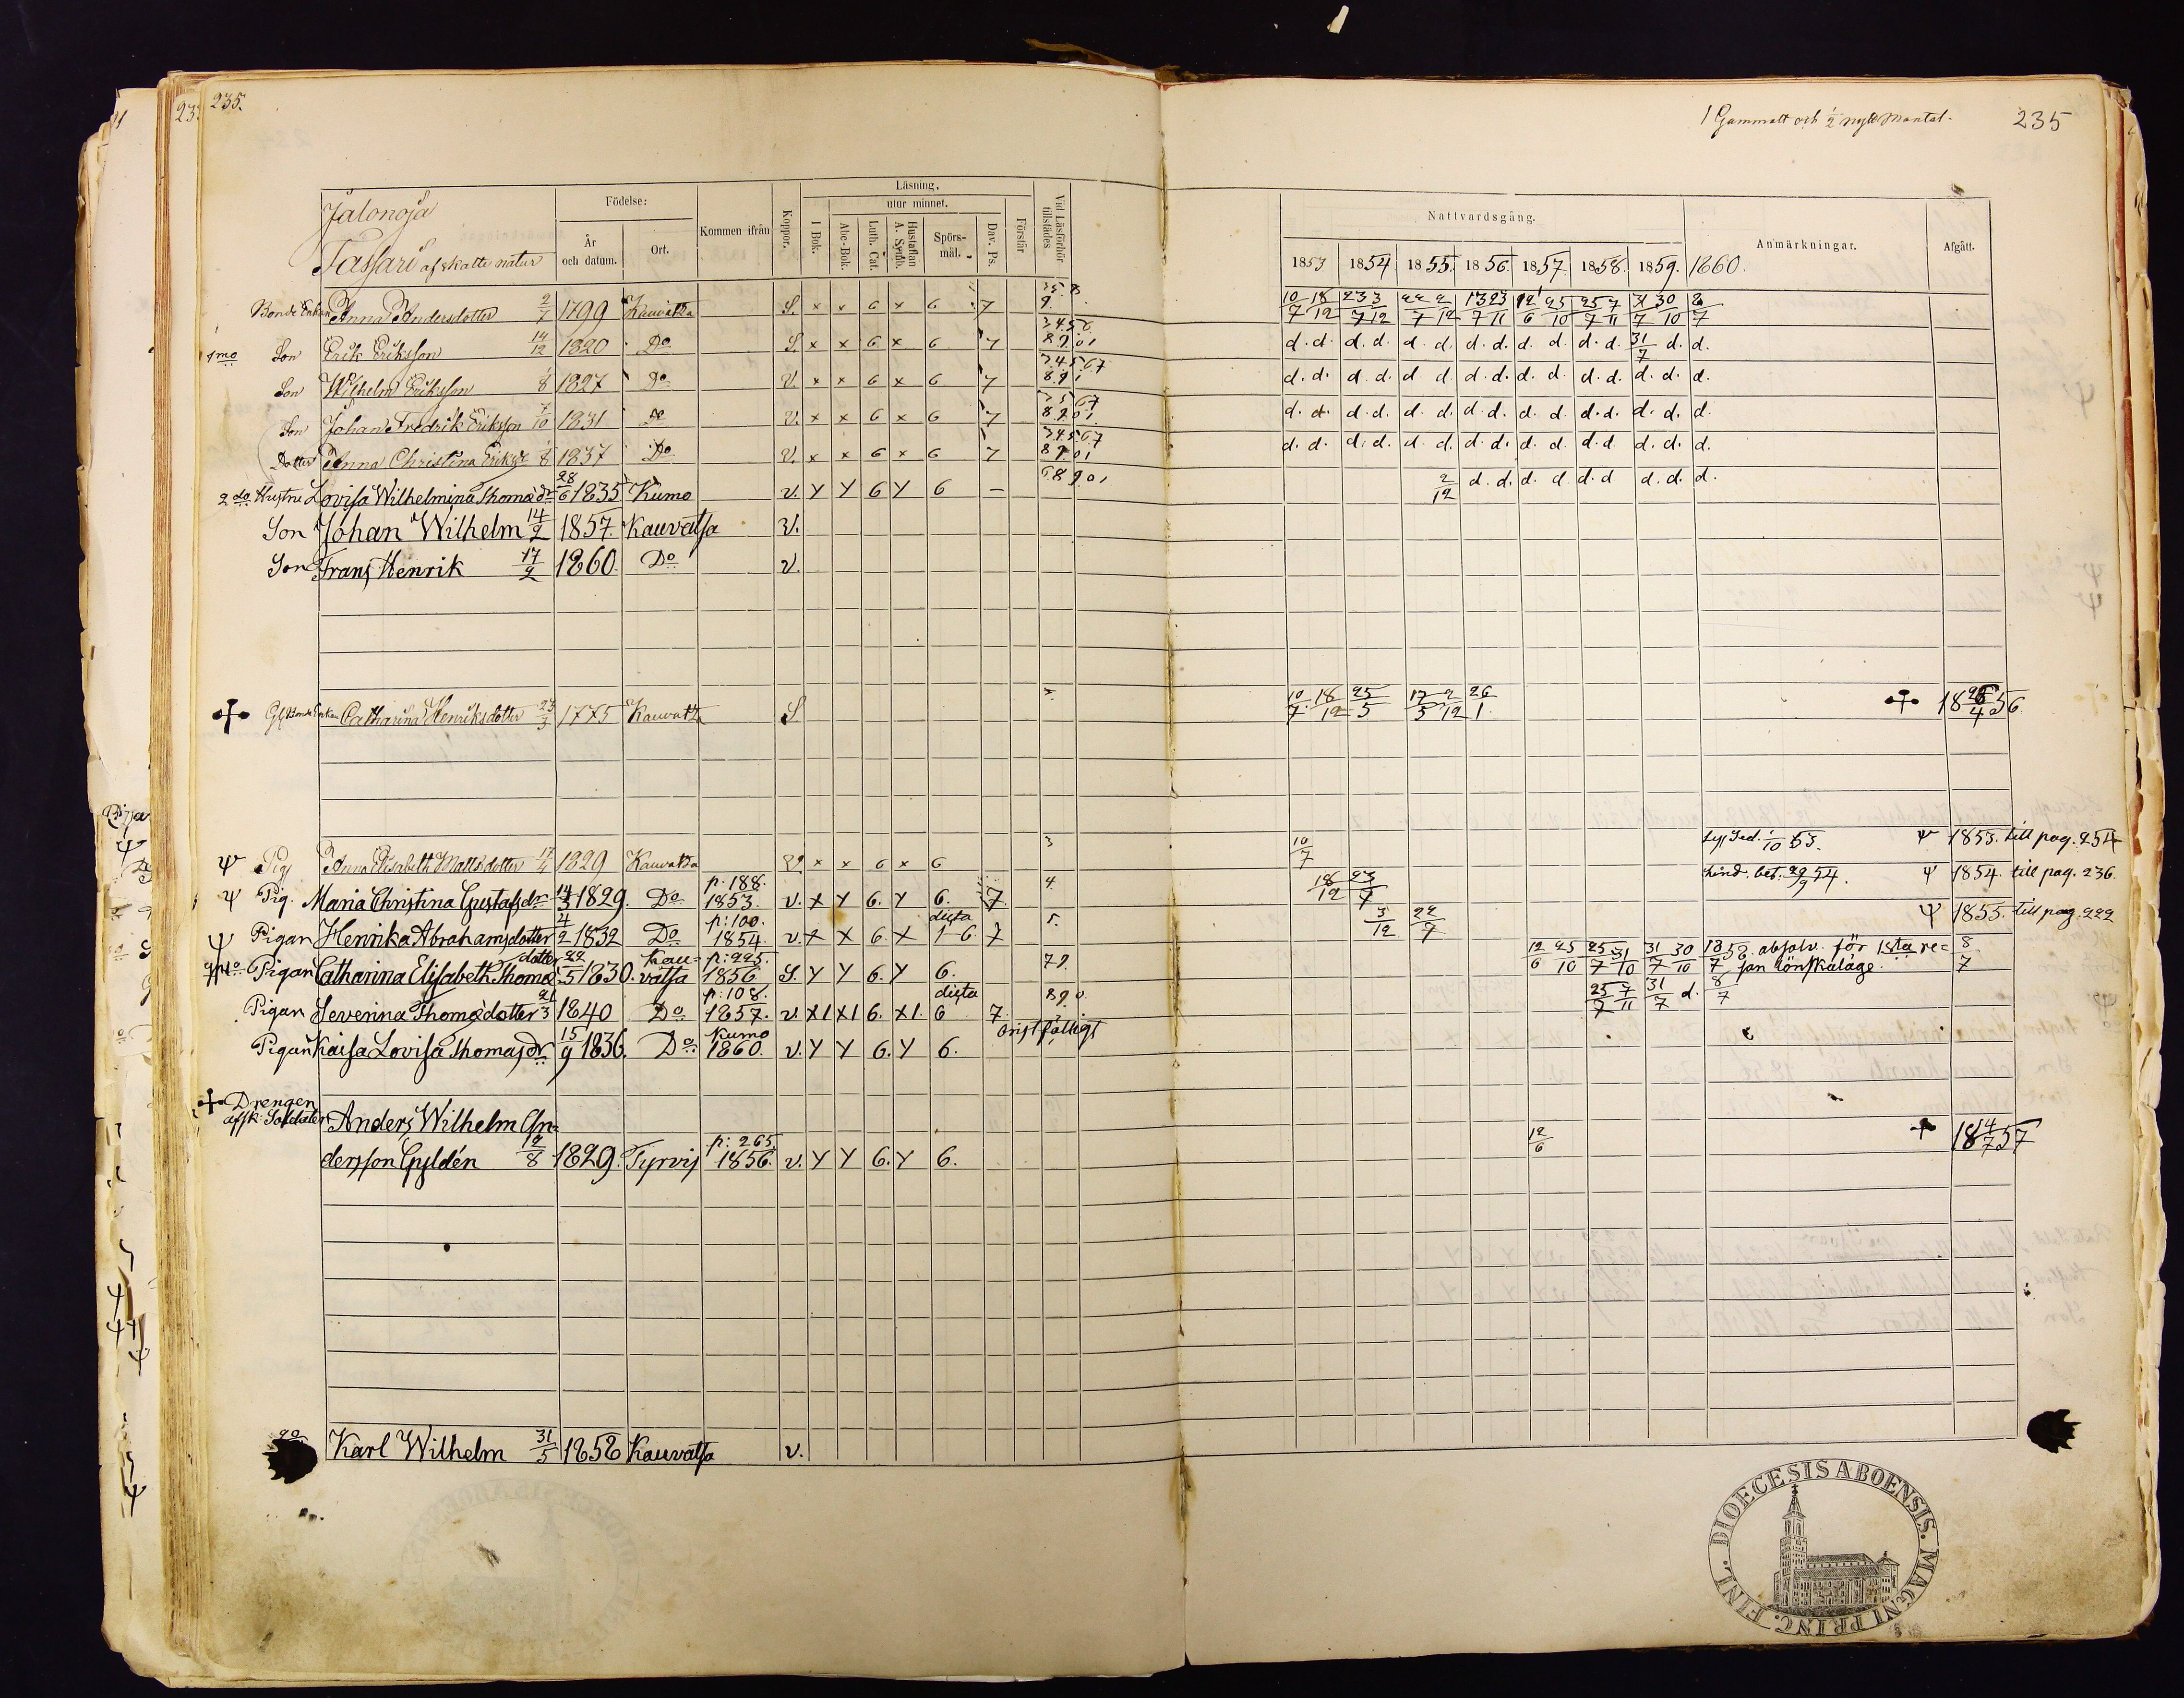 235.
1 Gammalt och 1/2 nytt Mantal.
235
Jalonoja
Tassari af skatte natur
Födelse:
År och datum.
Ort.
Kommen ifrån
Koppor.
Läsning,
utur minnet.
I Bok.
Abc-Bok.
Luth. Cat.
Hustaflan A. Symb.
Spörsmål.
Dav. Ps.
Förstår
Vid Läsförhör tillstädes
Nattvardsgång.
Anmärkningar.
Afgått.
1853 1854. 1855. 1856. 1857. 1858. 1859. 1860.
Bonde Enkan Anna Andersdotter 2/7 1799 Kauvatsa S. x x 6 x 6 7 10/7 18/12 23/7 3/12 22/7 2/12 13/7 23/11 12/6 25/10 25/7 7/11 31/7 30/10 8/7
1mo Son Erik Eriksson 14/12 1820 Do S. x x 6 x 6 7 d. d. d. d. d. d. d. d. d. d. d. d. 31/7 d. d.
Son Wilhelm Eriksson 1/8 1827 Do V. x x 6 x 6 7 d. d. d. d. d d. d. d. d. d. d. d. d. d. d.
Son Johan Fredrik Eriksson 7/10 1831 Do V. x x 6 x 6 7 d. d. d. d. d. d. d. d. d. d. d. d. d. d. d.
Dotter Anna Christina Eriksdr 1/8 1837 Do V. x x 6 x 6 7 d. d. d. d. d. d. d. d. d. d. d. d d. d. d.
2do Hustru Lovisa Wilhelmina Thomædr 28/6 1835 Kumo v. Y Y 6 Y 6 – 6 8 9 0 1 2/12 d. d. d. d. d. d d. d. d.
Son Johan Wilhelm 14/2 1857. Kauvatsa v.
Son Frans Henrik 17/2 1860. Do v.
Catharina Henriksdotter 23/3 1775 Kauvatsa S 10/7 18/12 25/5 17/5 2/12 26/1 18 26/4 56.
Ψ Pig Anna Elisabeth Mattsdotter 17/4 1829 Kauvatsa V. x x 6 x 6 3 10/7 1/10 53. Ψ 1853. till pag. 254
Ψ Pig. Maria Christina Gustafsdr 14/3 1829. Do p. 188. 1853. v. x Y 6. Y 6. 7 4. 18/12 23/7 hind. bet. 29/9 54. Ψ 1854. till pag. 236.
Ψ Pigan Henrika Abrahamsdotter 4/2 1832 Do p: 100. 1854. v. x x 6. x dicta 1-6. 7 5. 3/12 22/7 Ψ 1855. till pag. 222
Pigan Catharina Elisabeth Thomædotter 22/5 1830. Kauvatsa p: 225. 1856 S. Y Y 6. Y 6. 7 9. 12/6 25/10 25/7 31/10 31/7 30/10 18 8/7 58. absolv. för 1sta resan lönskaläge. 8/7
Pigan Severina Thomædotter 21/3 1840 Do p: 108. 1857. v. x1 x1 6. x1. dicta 6 7. 8 9 0. 25/7 7/11 31/7 d. 8/7
Pigan Kaisa Lovisa Thomasdr 15/9 1836. Do Kumo 1860. v. Y Y 6. Y 6.
Drengen
afsk: Soldaten Anders Wilhelm An=
dersson Gyldén 12/8 1829. Tyrvis p: 265. 1856. v. Y Y 6. Y 6. 12/6 18 14/7 57
Karl Wilhelm 31/5 1858 Kauvatsa v.
DIOECESIS ABOENSIS. MAGNI PRINC. FINL.